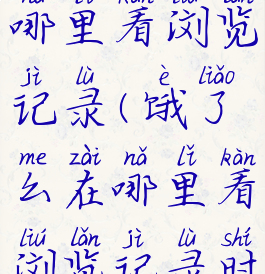 哪里看浏览
jì lù è liǎo
记录(饿了
me zài nǎ lǐ kàn
么在哪里看
liú lǎn jì lù shí
浏览记录时